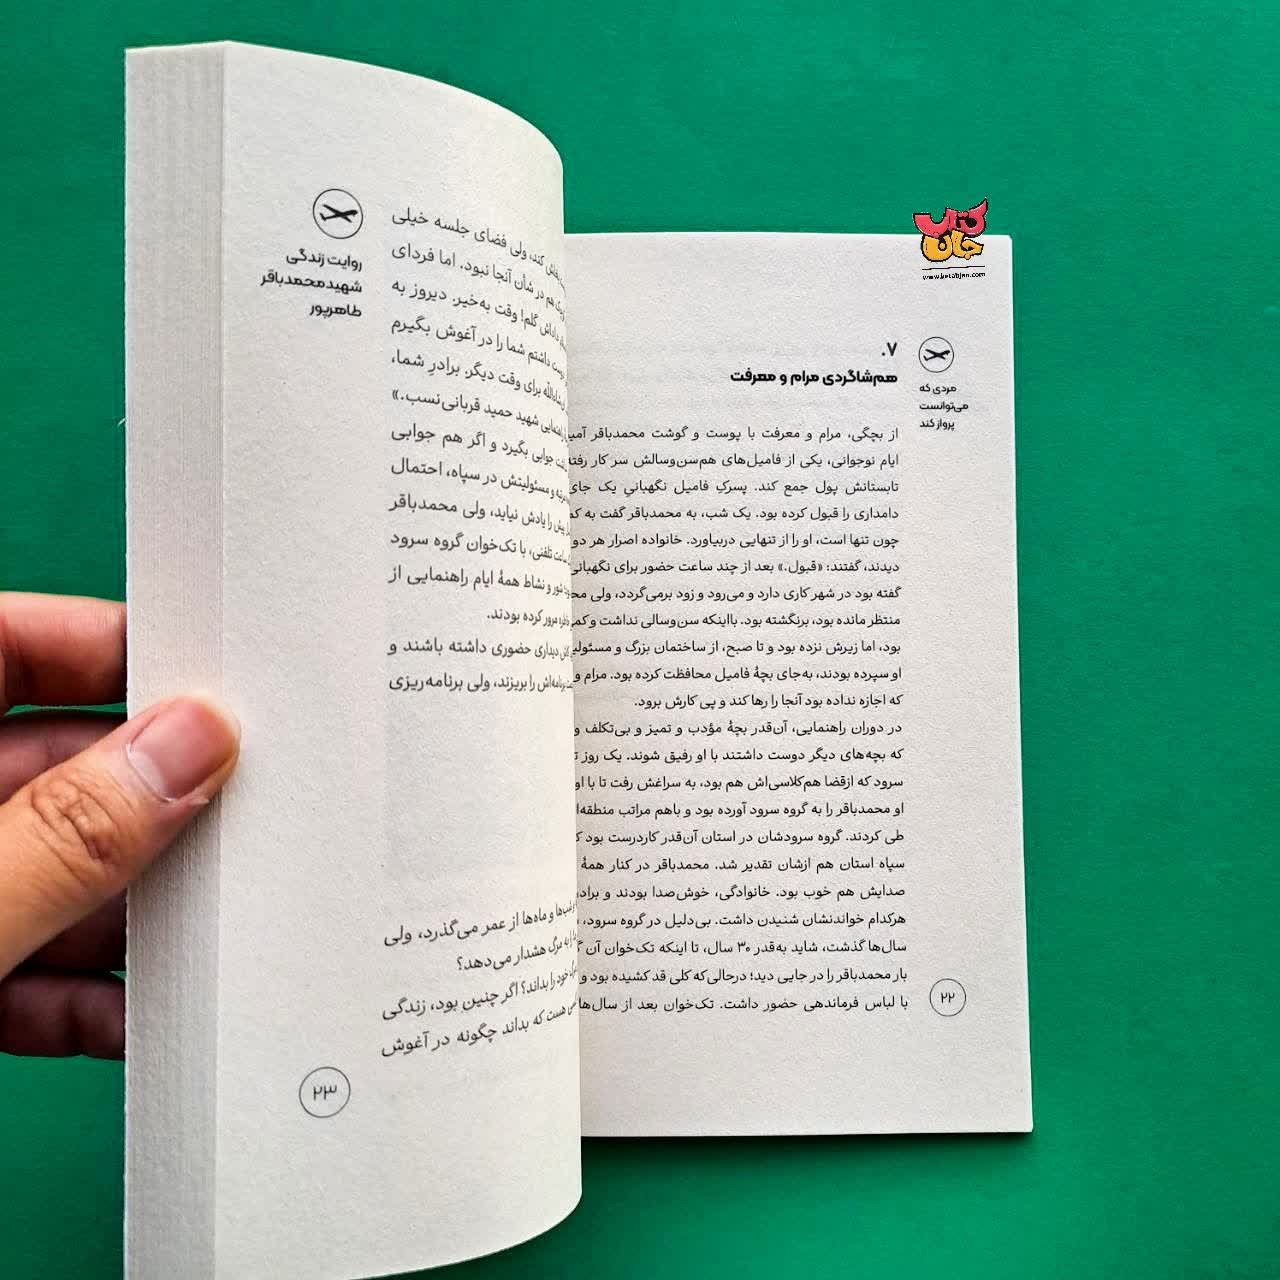 کتاب جان
www.ketabjan.com
مردی که
می‌توانست
پرواز کند
۷.
هم‌شاگردی مرام و معرفت
از بچگی، مرام و معرفت با پوست و گوشت محمدباقر
ایام نوجوانی، یکی از فامیل‌های هم‌سن‌وسالش سر کار رفته
تابستانش پول جمع کند. پسرکِ فامیل نگهبانیِ یک جای
دامداری را قبول کرده بود. یک شب، به محمدباقر گفت به
چون تنها است، او را از تنهایی دربیاورد. خانواده اصرار هر دو
دیدند، گفتند: «قبول.» بعد از چند ساعت حضور برای نگهبانی
گفته بود در شهر کاری دارد و می‌رود و زود برمی‌گردد، ولی
منتظر مانده بود، برنگشته بود. بااینکه سن‌وسالی نداشت و
بود، اما زیرش نزده بود و تا صبح، از ساختمان بزرگ و
او سپرده بودند، به‌جای بچهٔ فامیل محافظت کرده بود. مرام و
که اجازه نداده بود آنجا را رها کند و پی کارش برود.
در دوران راهنمایی، آن‌قدر بچهٔ مؤدب و تمیز و بی‌تکلف و
که بچه‌های دیگر دوست داشتند با او رفیق شوند. یک روز
سرود که ازقضا هم‌کلاسی‌اش هم بود، به سراغش رفت تا با او
او محمدباقر را به گروه سرود آورده بود و باهم مراتب
طی کردند. گروه سرودشان در استان آن‌قدر کاردرست بود
سپاه استان هم ازشان تقدیر شد. محمدباقر در کنار همهٔ
صدایش هم خوب بود. خانوادگی، خوش‌صدا بودند و
هرکدام خواندنشان شنیدن داشت. بی‌دلیل در گروه سرود،
سال‌ها گذشت، شاید به‌قدر ۳۰ سال، تا اینکه تک‌خوان آن
بار محمدباقر را در جایی دید؛ درحالی‌که کلی قد کشیده بود و
با لباس فرماندهی حضور داشت. تک‌خوان بعد از سال‌ها
۲۲
روایت زندگی
شهید محمدباقر
طاهرپور
کند، ولی فضای جلسه خیلی
هم در شأن آنجا نبود. اما فردای
داداش گلم! وقت به‌خیر. دیروز به
دوست داشتم شما را در آغوش بگیرم
برای وقت دیگر. برادرِ شما،
راهنمایی شهید حمید قربانی‌نسب.»
جوابی بگیرد و اگر هم جوابی
و مسئولیتش در سپاه، احتمال
پیش را یادش نیاید، ولی محمدباقر
ساعت تلفنی، با تک‌خوان گروه سرود
شور و نشاط همهٔ ایام راهنمایی از
مرور کرده بودند.
دیداری حضوری داشته باشند و
برنامه‌اش را بریزند، ولی برنامه‌ریزی
شب‌ها و ماه‌ها از عمر می‌گذرد، ولی
را به مرگ هشدار می‌دهد؟
خود را بداند؟ اگر چنین بود، زندگی
هست که بداند چگونه در آغوش
۲۳